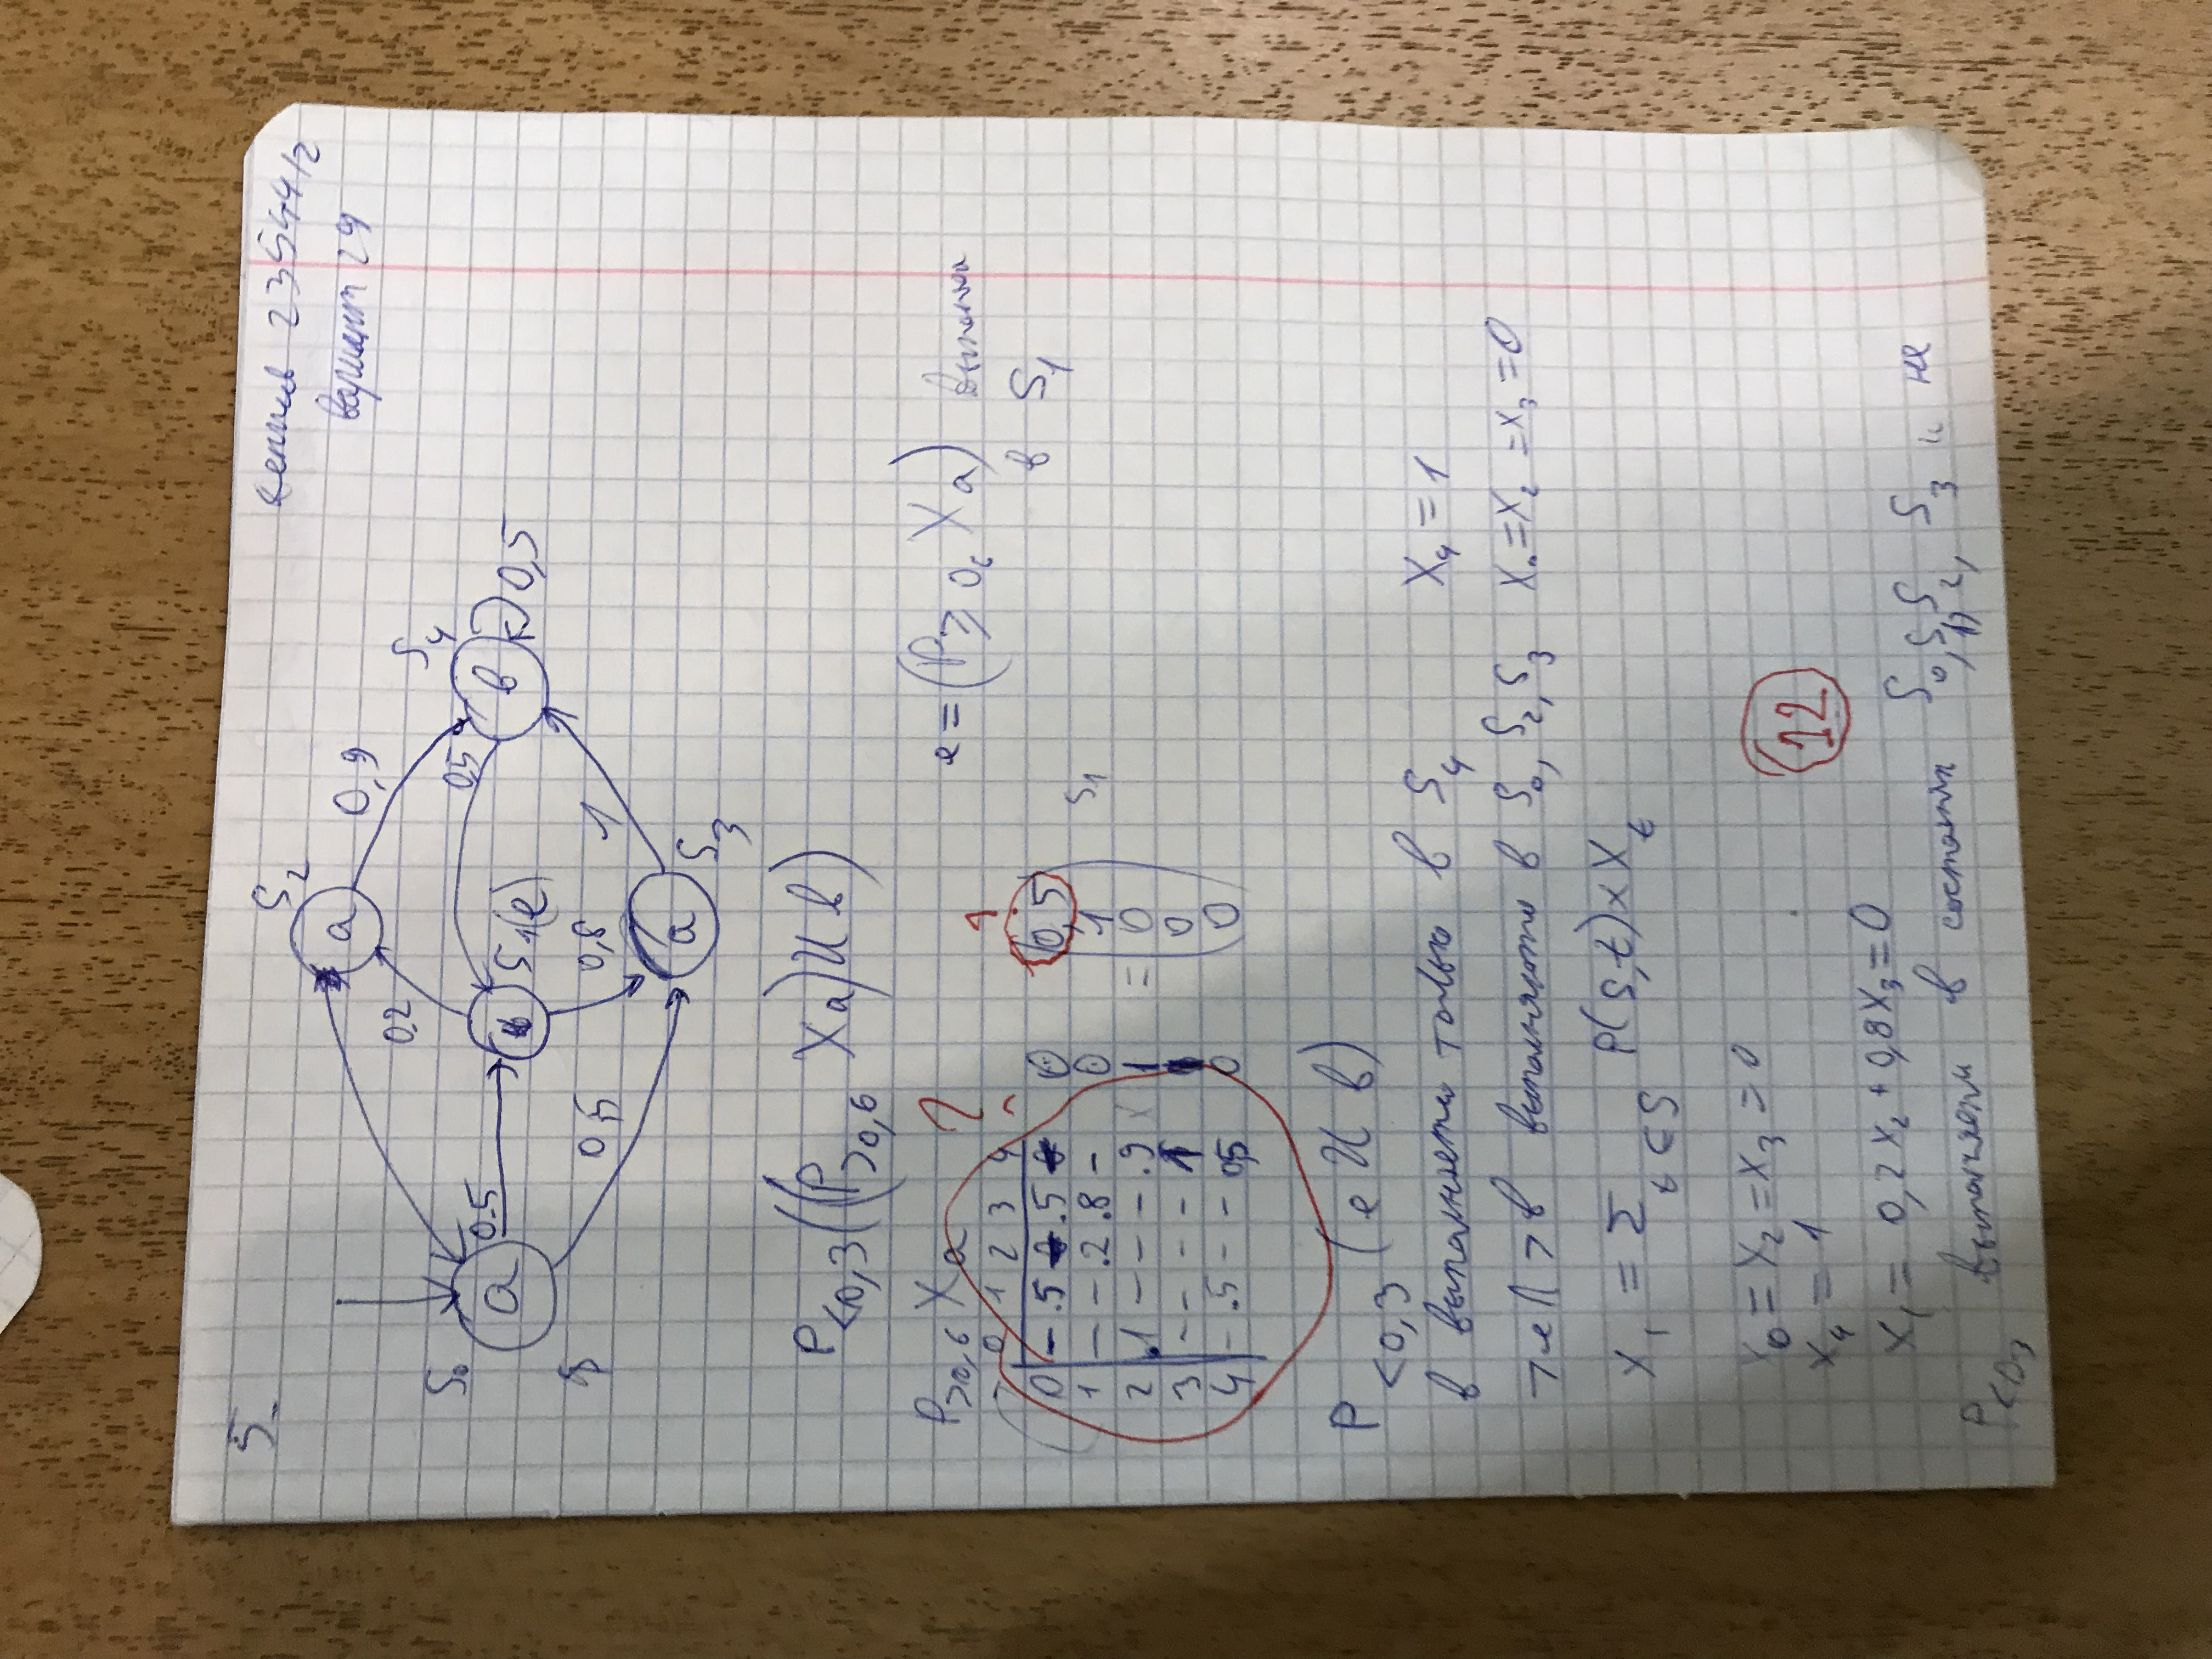 5.
23544/2
вариант 29
S₂
a
0,9
0.2
S₄
S₀
a
0.5
S₁(e)
0,5
в
0,5
0,5
0,8
1
a
S₃
P<0,3((P>0,6 Xa) U в)
P>0,6 Xa ?
e = (P≥0,6 Xa)
в S₁
0 1 2 3 4
0 - .5 .5 0 0,5
1 - - .2 .8 - 0 1 S₁
2 .1 - - - .9 × 1 = 0
3 - - - - 1 1 0
4 - .5 - - 0,5 0 0
P<0,3 (e U в)
в выполняется только в S₄ X₄ = 1
¬e Λ ¬в выполняются в S₀, S₂, S₃ X₀=X₂=X₃=0
X₁ = Σ t∈S P(s,t)×Xt
X₀ = X₂ = X₃ = 0
X₄ = 1
12
X₁ = 0,2X₂ + 0,8X₃ = 0
P<0,3 выполняется в состояниях S₀, S₁, S₂, S₃ и не